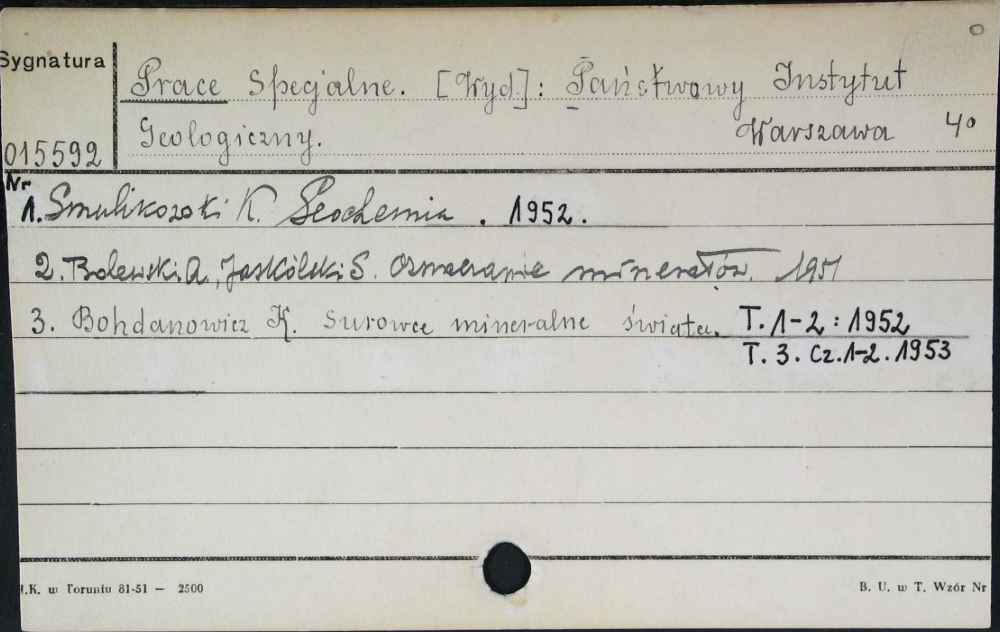 Sygnatura
Prace Specjalne. [Wyd.]: Państwowy Instytut
Geologiczny. Warszawa 4°
015592
Nr
1. Smulikowski K. Geochemia. 1952.
2. Bolewski A., Jaskólski S. Oznaczanie minerałów. 1951
3. Bohdanowicz K. Surowce mineralne świata. T. 1-2: 1952
T. 3. Cz. 1-2. 1953
.K. w Toruniu 81-51 — 2500
B. U. w T. Wzór Nr